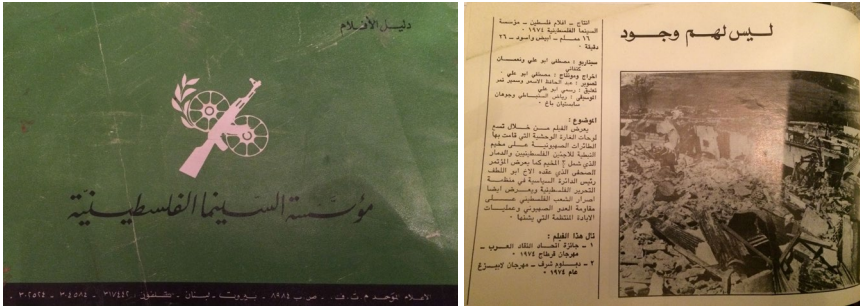 دليل الأفلام
مؤسسة السينما الفلسطينية
الاعلام الموحد م.ت.ف. ص.ب ٨٩٨٤ - بيروت - لبنان - تلفون: ٣١٧٤٤٢ - ٣٠٤٥٨٤ - ٣٠٢٥٢٤
ليس لهم وجود
انتاج - افلام فلسطين - مؤسسة
السينما الفلسطينية ١٩٧٤ ٠
١٦ مملم - ابيض واسود - ٢٦
دقيقة ٠
سيناريو : مصطفى ابو علي ونعمــان
كنفاني
اخراج ومونتاج : مصطفى ابو علي ٠
تصوير : عبد الحافظ الاسمر وسمير نمر
تعليق : رسمي ابو علي
الموسيقى : رياض السنباطي وجوهان
سابستيان باخ ٠
الموضوع :
يعرض الفيلم من خلال تسع
لوحات الغارة الوحشية التي قامت بها
الطائرات الصهيونية على مخيم
النبطية للاجئين الفلسطينيين والدمار
الذي شمل المخيم كما يعرض المؤتمر
الصحفي الذي عقده الاخ ابو اللطف
رئيس الدائرة السياسية في منظمة
التحرير الفلسطينية ويعرض ايضا
اصرار الشعب الفلسطيني على
مقاومة العدو الصهيوني وعمليات
الابادة المنتظمة التي يشنها ٠
نال هذا الفيلم :
١ - جائزة اتحاد النقاد العرب -
مهرجان قرطاج ١٩٧٤ ٠
٢ - دبلوم شرف - مهرجان لايبزغ
عام ١٩٧٤ ٠